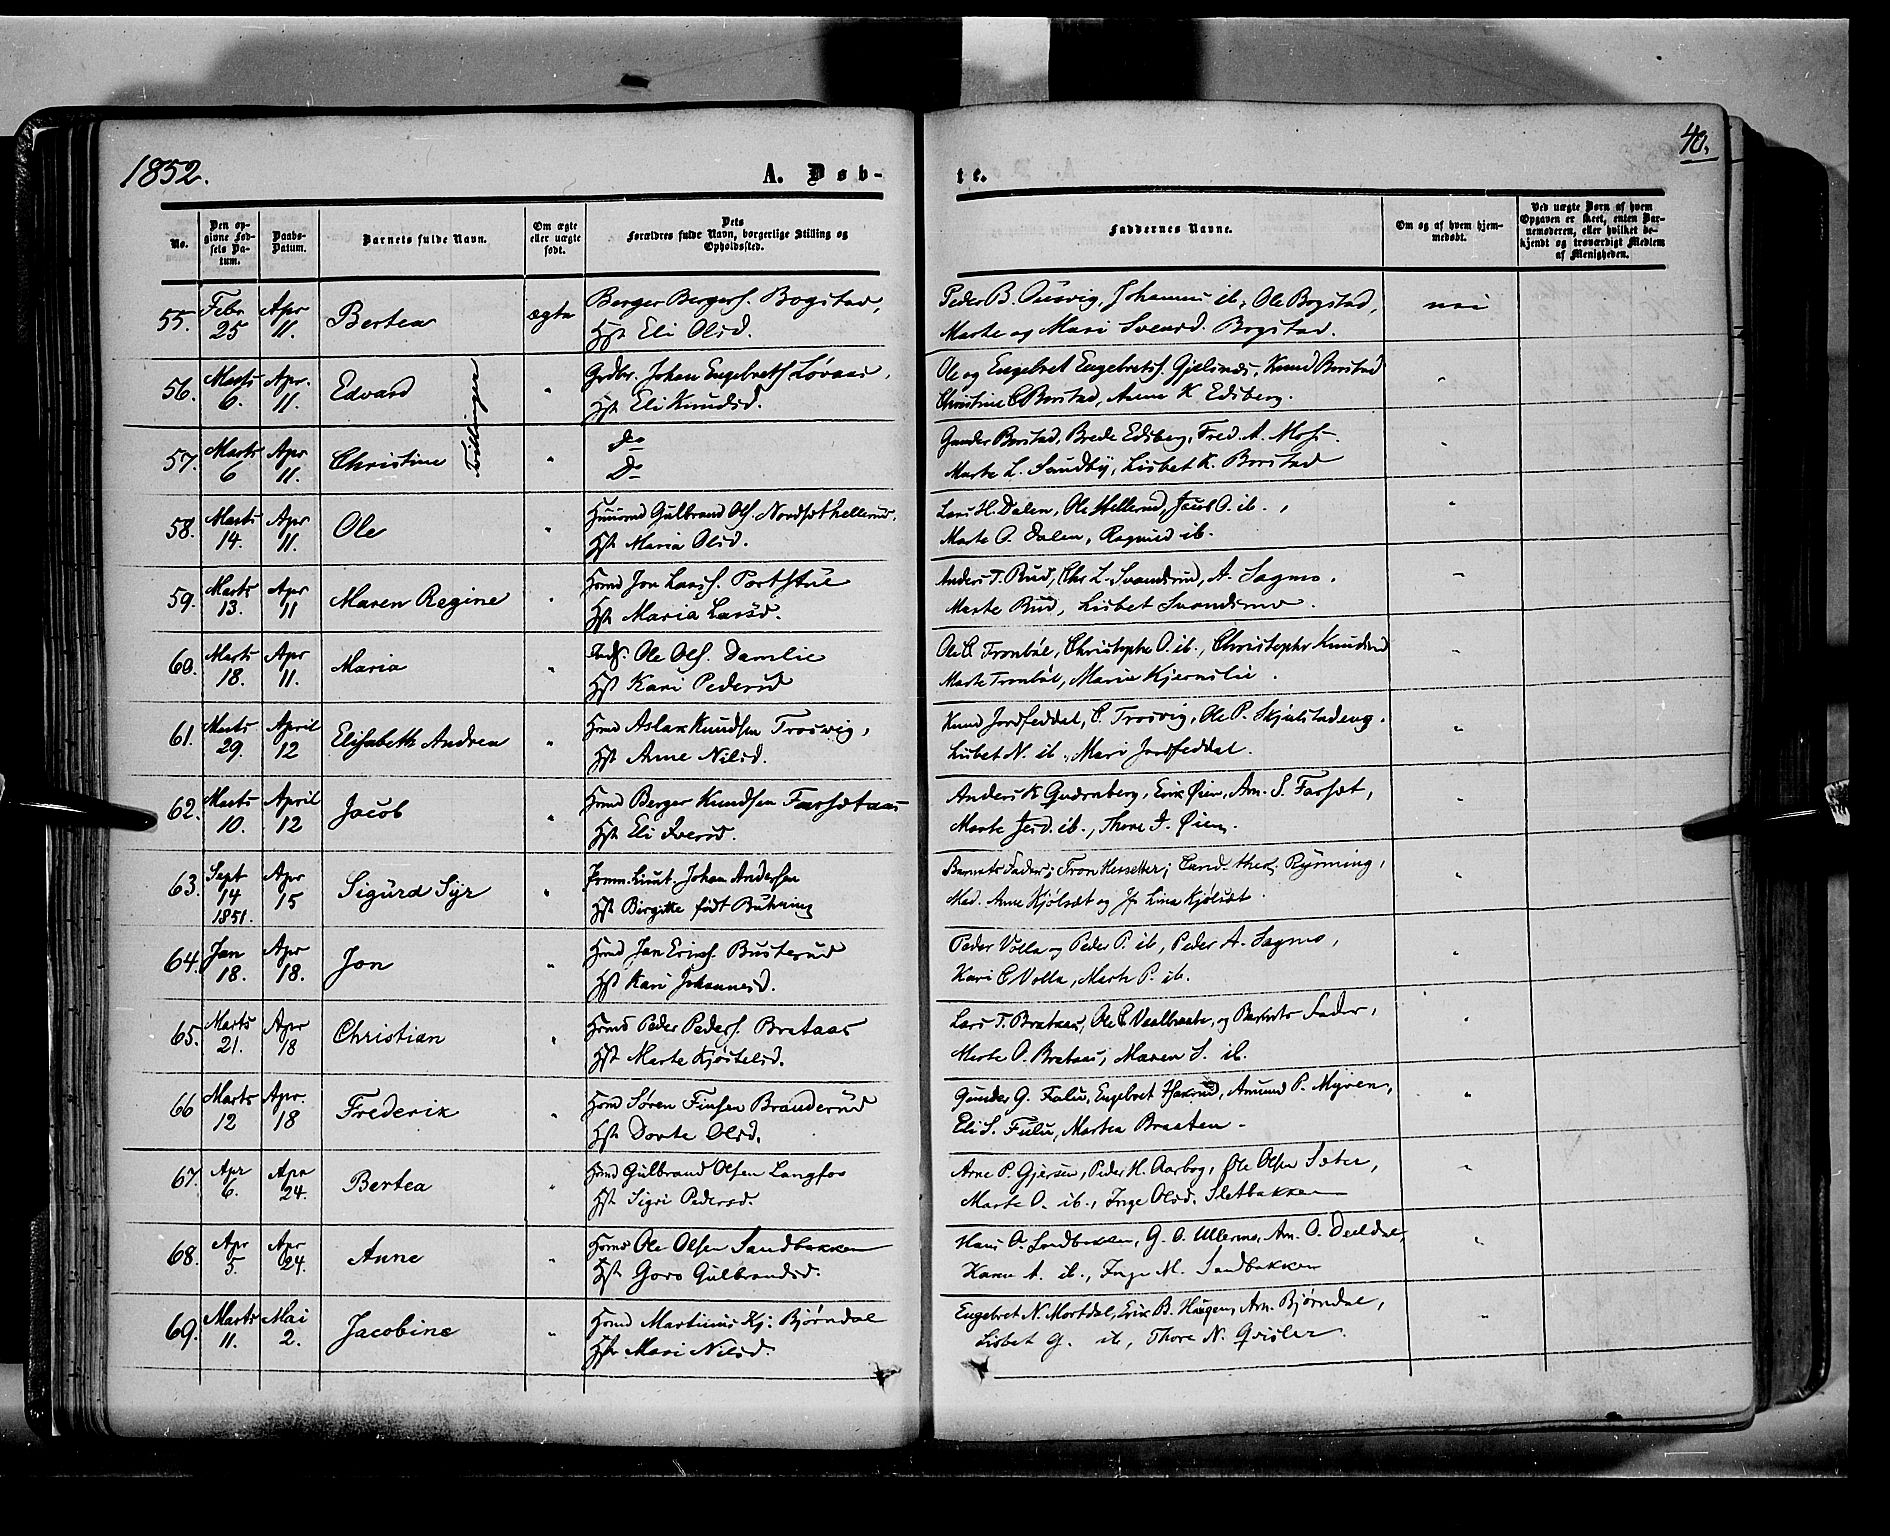 1852.
A. Døb-
te.
40.
No.
Den opgivne Fødsels Datum.
Daabs-Datum.
Barnets fulde Navn.
Om ægte eller uægte født.
Dets Forældres fulde Navn, borgerlige Stilling og Opholdssted.
Faddernes Navne.
Om og af hvem hjemmedøbt.
Ved uægte Børn af hvem Opgaven er skeet, enten Barnemoderen, eller hvilket bekjendt og troværdigt Medlem af Menigheden.
55. Febr 25 Apr 11. Bertea ægte Berger Bergers. Bogstad,
Hst Eli Olsd.
Peder B. Johannes ib., Ole Bogstad, nei
Marte og Mari Svensd. Bogstad.
56. Marts 6. Apr. 11. Edvard " Grdbr. Johan Engebrets Løvaas,
Hst. Eli Knudsd.
Tvillinger
Ole og Engebret Engebrets. Knud Borstad "
Christine C Borstad, Anne K. Edsberg.
57. Marts 6 Apr 11. Christine " Do
Do
Gunder Borstad, Brede Edsberg, Fred. A. Mo "
Marte L. Sundby, Lisbet K. Borstad
58. Marts 14. Apr 11. Ole " Gulbrand Ols.
Hst Maria Olsd.
Lars H. Dalen, Ole Hellerud, Jacob O. ib., "
Marte O. Dalen, Ragnild ib.
59. Marts 13. Apr 11 Maren Regine " Hmd Jon Larss. Portstue
Hst Maria Larsd.
Anders T. Rud, Chr L. A. Sagmo. "
Marte Rud, Lisbet Svandsmo.
60. Marts 18. Apr 11. Maria " Ole Ols. Damlie
Hst Kari Pedersd
Ole C Tronbøl, Christophe O. ib., Christopher Knudsrud
Marte Tronbøl, Maria Kjernslie.
61. Marts 29. April 12 Elisabeth Andrea " Hmd Aslak Knudsen Trosvig,
Hst Anne Nilsd.
Knud Jordfeddal, C. Trosvig, Ole P. Skjulstadeng. "
Lisbet N. ib., Mari Jordfeddal.
62. Marts 10. April 12 Jacob " Hmd Berger Knudsen Farsætaas
Hst Eli Iversd.
Anders K. Erik Øien, Arn. S. Farsæt, "
Marte ib., Thore J. Øien.
63. Sept 14 1851. Apr 15 Sigurd Syr " Prem. Lieut. Johan Andersen
Hst Birgitte født Buhring
Barnets Fader; Tron Hessetter; Cand. theol. Rynning, "
Mad. Anne Kjølsæt og Jf Lina Kjølsæt.
64. Jan 18. Apr 18. Jon " Hmd Jan Erics. Busterud
Hst Kari Johannesd.
Peder Volla og Peder P. ib, Peder A. Sagmo, "
Kari C Volla, Marte P. ib.
65. Marts 21. Apr 18 Christian " Hmd Peder Peders. Brataas
Hst Marte Kjøstelsd.
Lars T. Brataas, Ole C Vaalbraate, og Barnets Fader, "
Marte O. Brataas, Maren S. ib.
66 Marts 12 Apr. 18 Frederik " Hmd Søren Finsen Branderud
Hst Dorte Olsd.
Gunder G. Fulu, Engebret Amund P. Myren, "
Eli S. Fulu, Martea Braaten.
67. Apr 6. Apr 24. Bertea " Hmd Gulbrand Olsen Langfos
Hst Sigri Pedersd.
Arne P. Gjersøn, Peder H. Aarbog, Ole Olsen Sæter, "
Marte O. ib., Inge Olsd. Sletbakken
68. Apr 5. Apr 24. Anne " Hmd Ole Olsen Sandbakken
Hst Goro Gulbrandsd.
Hans O. Sandbakken, G. O. Ullermo, Arn. O. "
Karen A. ib., Inge M. Sandbakken
69. Marts 11. Mai 2. Jacobine " Hmd Martinus Kj: Bjørndal
Hst Mari Nilsd.
Engebret N. Mortdal, Erik B. Haugen, Arn. Bjørndal, "
Lisbet G. ib, Thore N. Qvisler.